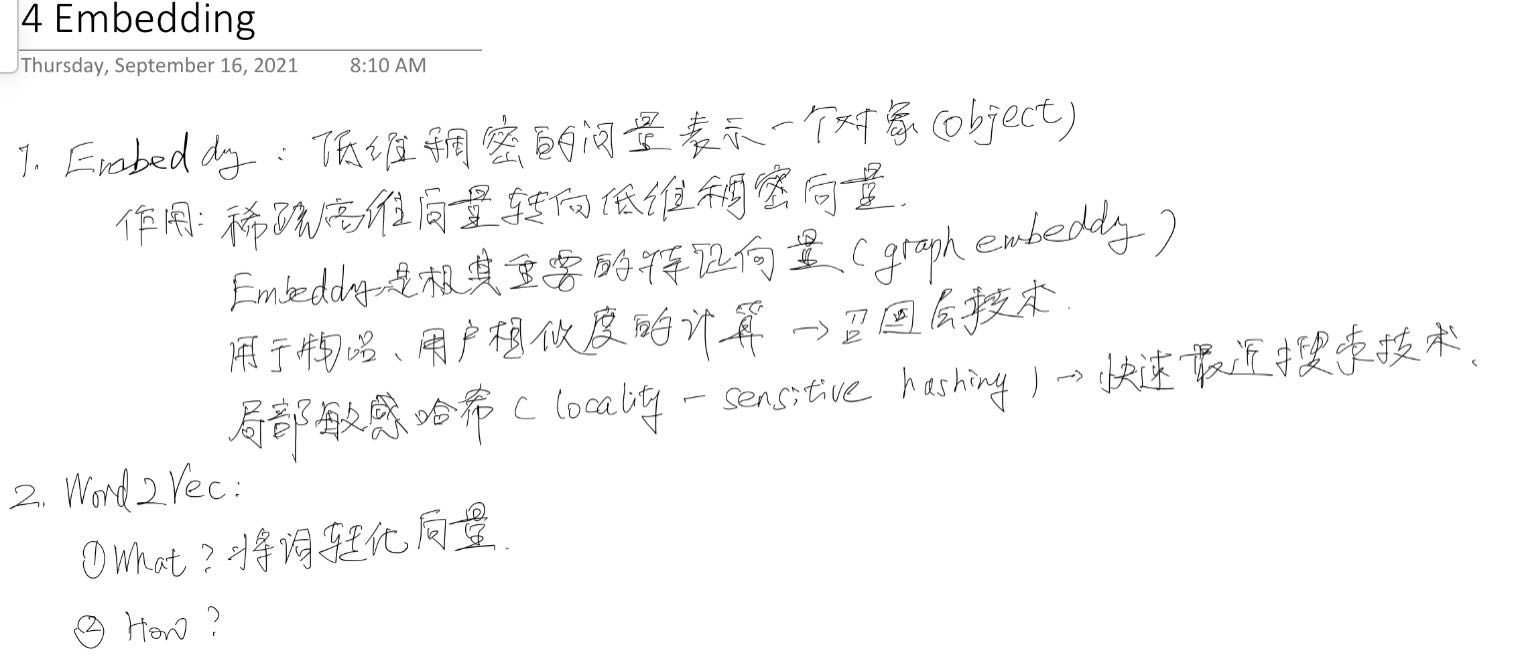 4 Embedding
Thursday, September 16, 2021 8:10 AM
1. Embedding: 低维稠密的向量表示一个对象(object)
作用: 稀疏高维向量转向低维稠密向量.
Embedding是极其重要的特征向量(graph embedding)
用于物品、用户相似度的计算 → 召回层技术.
局部敏感哈希(locality-sensitive hashing) → 快速最近搜索技术.
2. Word2Vec:
① What? 将词转化向量.
② How?